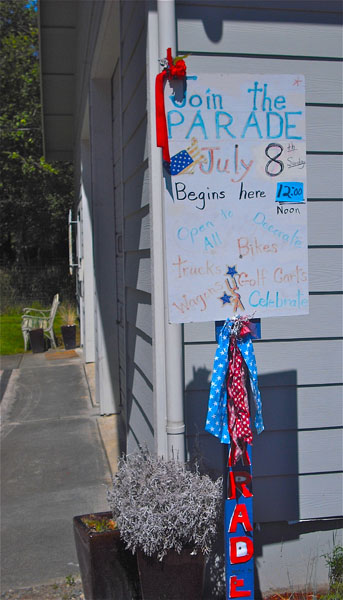 Join the
PARADE
July 8th Sunday
Begins here 12:00
Noon
Open to All
Decorate
Bikes
Trucks Golf Cart's
Wagons Celebrate
RADE